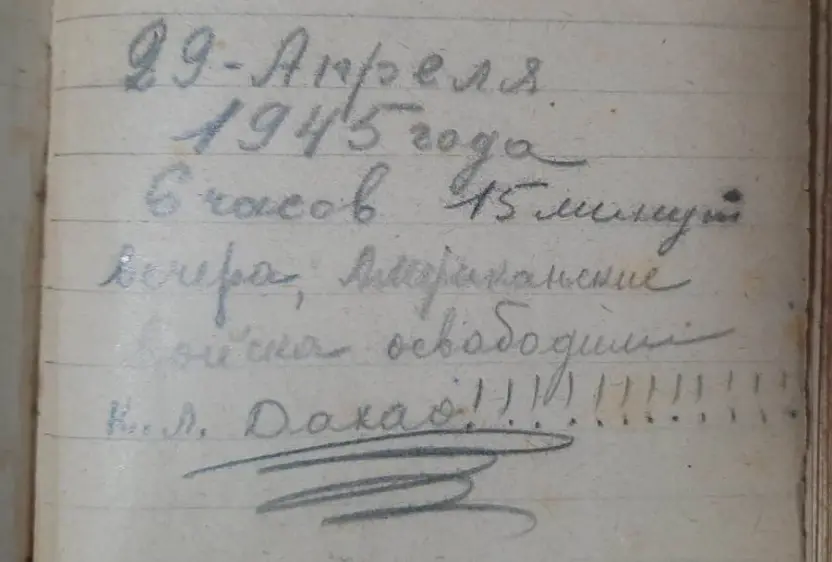 29-Апреля
1945 года
6 часов 15 минут
вечера, Американские
войска освабодили
к.л. Дахао!!!!!!!!!!!!!